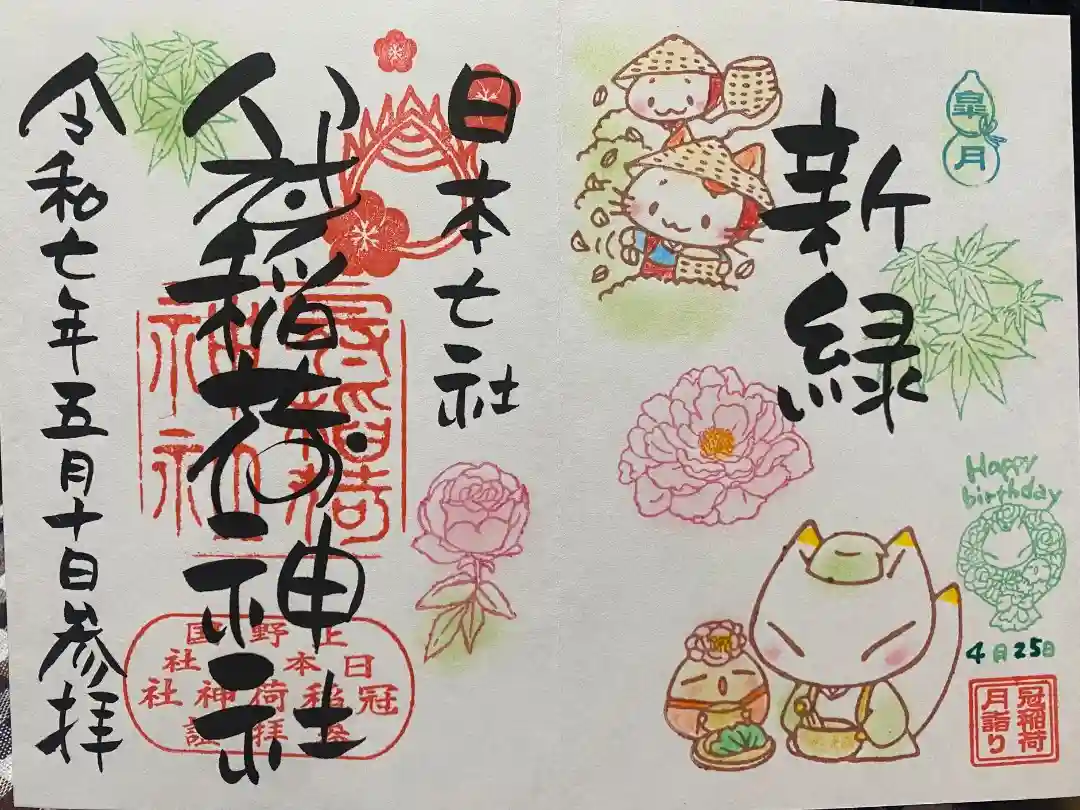 皐月
新緑
Happy
birthday
4月25日
冠稲荷
月詣り
日本七社
冠稲荷神社
上野国
日本七社
冠稲荷神社
拝証
令和七年五月十日参拝